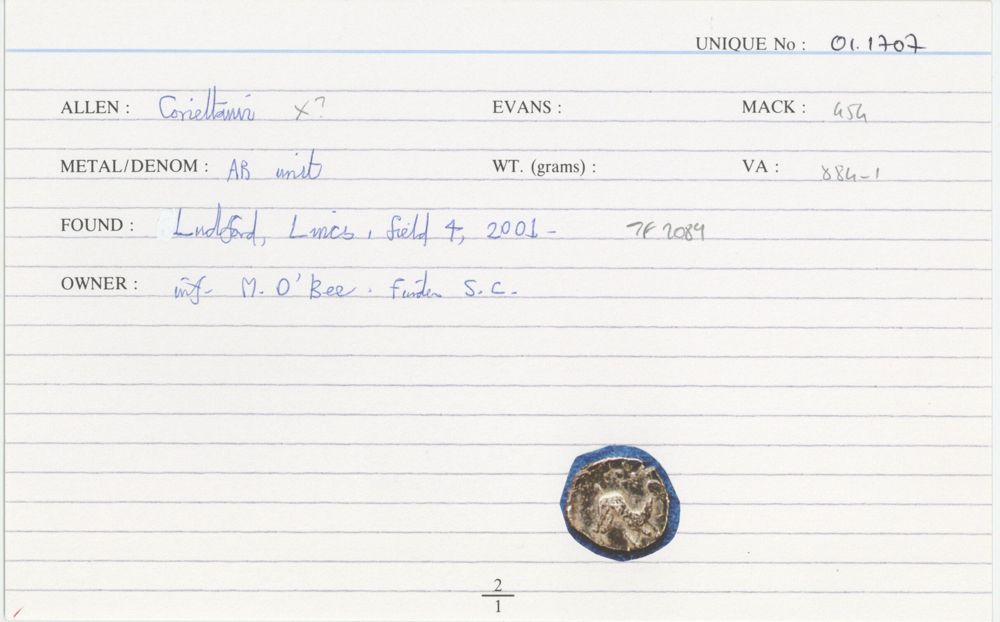 UNIQUE No : 01.1707
ALLEN : Corieltauvi x? EVANS : MACK : 454
METAL/DENOM : AR unit WT. (grams) : VA : 884-1
FOUND : Ludford, Lincs, field 4, 2001 - TF 2089
OWNER : inf. M. O'Bee. Finder S.C.
2
1